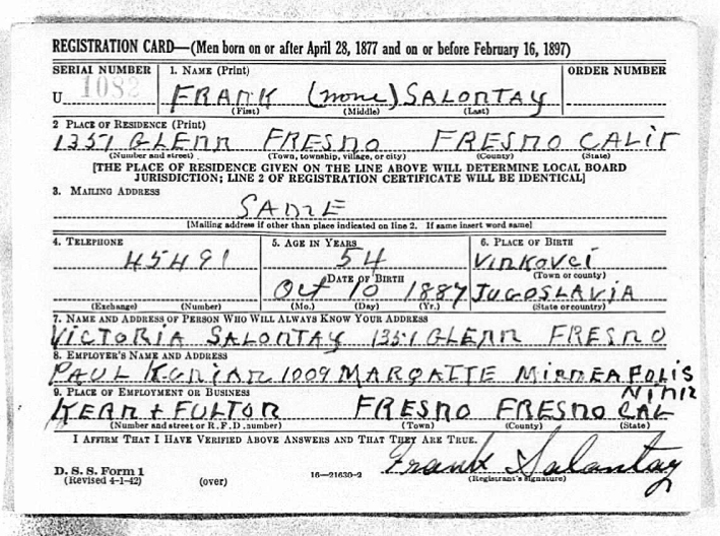 REGISTRATION CARD—(Men born on or after April 28, 1877 and on or before February 16, 1897)
SERIAL NUMBER 1. NAME (Print) ORDER NUMBER
U 1082 FRANK (none) SALONTAY
(First) (Middle) (Last)
2 PLACE OF RESIDENCE (Print)
1351 GLENN FRESNO FRESNO CALIF
(Number and street) (Town, township, village, or city) (County) (State)
[THE PLACE OF RESIDENCE GIVEN ON THE LINE ABOVE WILL DETERMINE LOCAL BOARD
JURISDICTION; LINE 2 OF REGISTRATION CERTIFICATE WILL BE IDENTICAL]
3. MAILING ADDRESS
SAME
[Mailing address if other than place indicated on line 2. If same insert word same]
4. TELEPHONE 5. AGE IN YEARS 6. PLACE OF BIRTH
45491 54 VINKOVCI
DATE OF BIRTH (Town or county)
Oct 10 1887 JUGOSLAVIA
(Exchange) (Number) (Mo.) (Day) (Yr.) (State or country)
7. NAME AND ADDRESS OF PERSON WHO WILL ALWAYS KNOW YOUR ADDRESS
VICTORIA SALONTAY 1351 GLENN FRESNO
8. EMPLOYER'S NAME AND ADDRESS
PAUL 1009 MARQATTE MINNEAPOLIS
9. PLACE OF EMPLOYMENT OR BUSINESS
KERN + FULTON FRESNO FRESNO CAL
(Number and street or R. F. D. number) (Town) (County) (State)
I AFFIRM THAT I HAVE VERIFIED ABOVE ANSWERS AND THAT THEY ARE TRUE.
Frank Salontay
D. S. S. Form 1
(Revised 4-1-42) (over) 16—21630-2 (Registrant's signature)